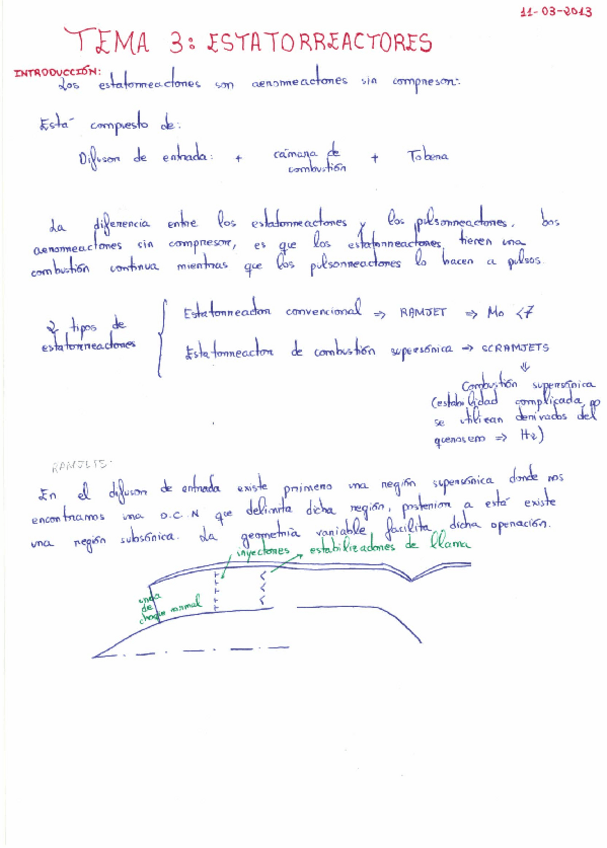 11-03-2013
TEMA 3: ESTATORREACTORES
INTRODUCCIÓN:
Los estatorreactores son aerorreactores sin compresor.
Está compuesto de:
Difusor de entrada: + cámara de combustión + Tobera
La diferencia entre los estatorreactores y los pulsorreactores, dos
aerorreactores sin compresor, es que los estatorreactores, tienen una
combustión continua mientras que los pulsorreactores lo hacen a pulsos.
2 tipos de
estatorreactores
Estatorreactor convencional ⇒ RAMJET ⇒ Mo <7
Estatorreactor de combustión supersónica → SCRAMJETS
⇓
Combustión supersónica
(estabilidad complicada, no
se utilizan derivados del
queroseno ⇒ H2)
RAMJETS:
En el difusor de entrada existe primero una región supersónica donde nos
encontramos una O.C.N que delimita dicha región, posterior a está existe
una región subsónica. La geometría variable facilita dicha operación.
inyectores
estabilizadores de llama
onda
de
choque normal